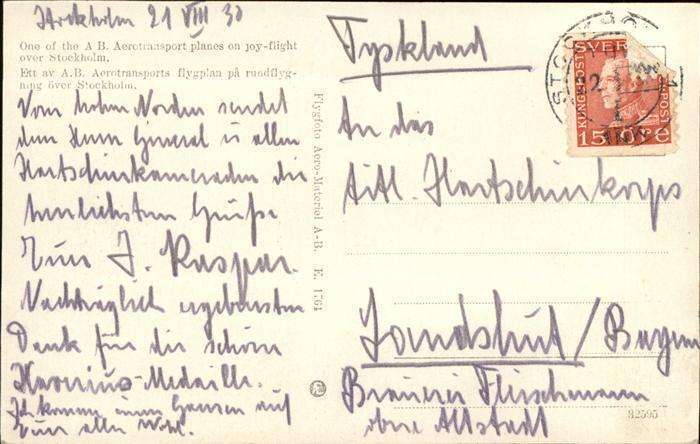 Stockholm 21 VIII 30
One of the A B. Aerotransport planes on joy-flight
over Stockholm.
Ett av A.B. Aerotransports flygplan på rundflyg-
ning över Stockholm.
Vom hohen Norden sendet
dem Herrn General u allen
Hartschierkameraden die
herzlichsten Grüße
Euer J. Kaspar.
Nachträglich ergebensten
Dank für die schöne
Medaille.
Ich komme im auf
Euer aller Wohl.
Flygfoto Aero-Materiel A-B. E. 1761
Tyskland
An das
titl. Hartschierkorps
Landshut/Bayern
Brauerei Fleischmann
obere Altstadt
32595
STOCKHOLM
SVERIGE
KUNGSPOST
15 ÖRE